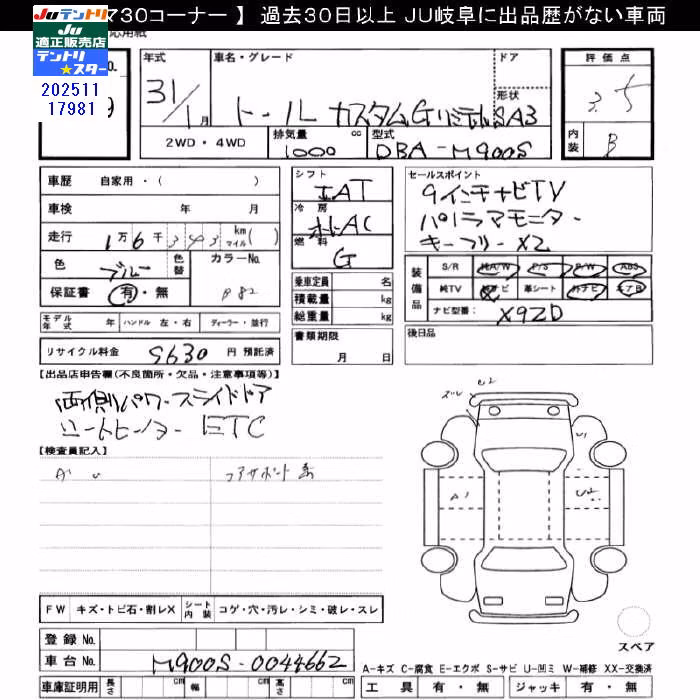 730コーナー 】 過去30日以上 JU岐阜に出品歴がない車両
JUテントリ
JU
適正販売店
テントリ
★スター
202511
17981
年式 車名・グレード ドア 評価点
形状
31/1月 トール カスタムGリミテッドSA3 3.5
2WD・4WD 排気量 1000 cc 型式 DBA-M900S 内装 B
車歴 自家用・( )
車検 年 月
走行 1万6千343 km マイル( )
色 ブルー 色替 カラーNo.
保証書 有・無 B82
モデル年式 年 ハンドル 左・右 ディーラー・並行
リサイクル料金 9630 円 預託済
シフト IAT
冷房 オートAC
燃料 G
乗車定員 名
積載量 kg
総重量 kg
書類期限
月 日
セールスポイント
9インチナビTV
パノラマモニター
キーフリー×2
装備品 S/R 純A/W P/S P/W ABS
純TV 純ナビ 革シート 外ナビ エアB
ナビ型番: X9ZD
後日品
【出品店申告欄(不良箇所・欠品・注意事項等)】
両側パワースライドドア
シートヒーター ETC
【検査員記入】
A U
コアサポート
U2
U1
A1
U2
FW キズ・トビ石・割レX シート内装 コゲ・穴・汚レ・シミ・破レ・スレ
登録 No.
車台 No. M900S-0044662
車庫証明用 長さ cm 幅 cm 高さ cm
スペア
A-キズ C-腐食 E-エクボ S-サビ U-凹ミ W-補修 XX-交換済
工具 有・無 ジャッキ 有・無